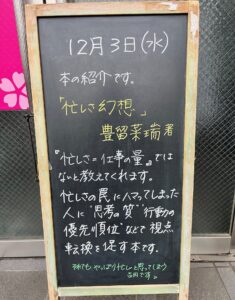 12月3日(水)
本の紹介です。
「忙しさ幻想」
豊留菜瑞 著
『忙しさ=仕事の量』では
ないと教えてくれます。
忙しさの罠にハマってしまった
人に"思考の質""行動の
優先順位"などで視点
転換を促す本です。
師走やっぱり忙しいと思ってしまう